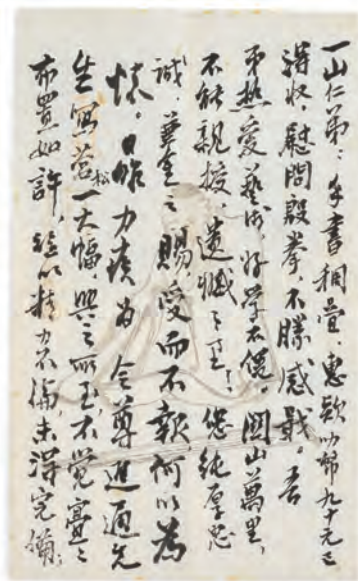 一山仁弟：手書稠疊，惠款叻幣九十元已
得收，慰問殷拳，不勝感戢。吾
弟熱愛藝術，好學不倦。關山萬里，
不能親授，遺憾之至！您純厚忠
誠，兼金之賜，受而不報，何以為
懷。日昨力疾為 令尊進通先
生寫蒼松一大幅，興之所至，不覺亹亹
布置如許，以精力不，未得完